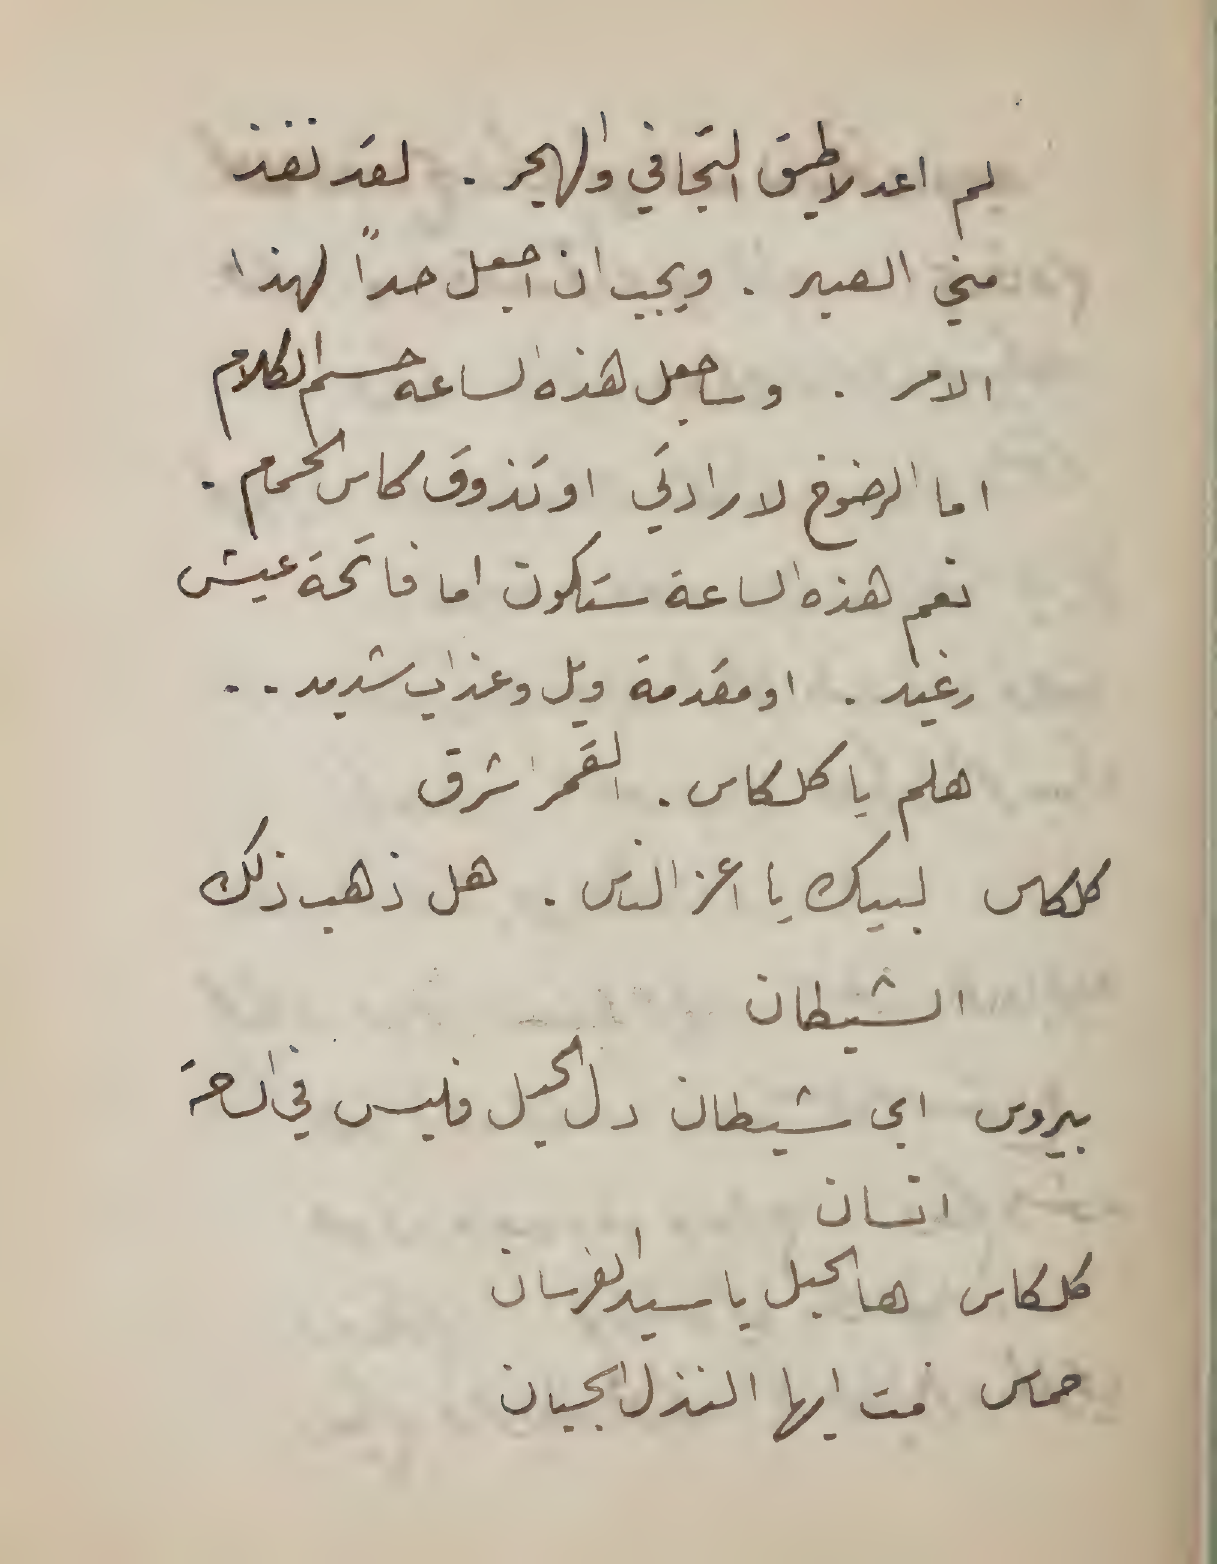 لم اعد لاطيق التجافي والهجر . لقد نفذ
مني الصبر . ويجب ان اجعل حداً لهذا
الامر . وساجعل هذه الساعه حسم الكلام
اما الرضوخ لارادتي او تذوق كاس الحمام .
نعم هذه الساعة ستكون اما فاتحة عيش
رغيد . او مقدمة ويل وعذاب شديد . .
هلم يا كلكاس . القمر اشرق
كلكاس لبيك يا اعز الناس . هل ذهب ذلك
الشيطان
بيروس اي شيطان دل الحبل فليس في الساحة
انسان
كلكاس ها الحبل يا سيد الفرسان
حماس مت ايها النذل الجبان